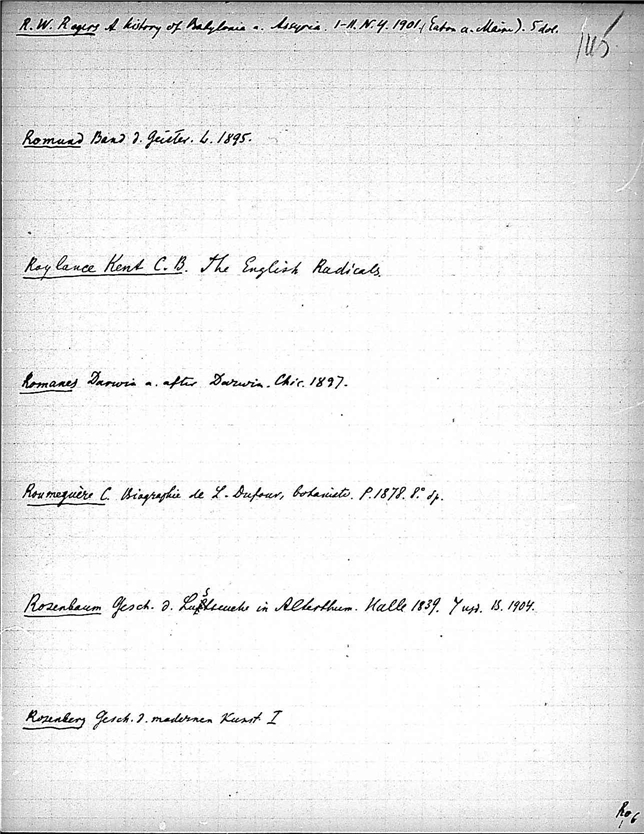 R. W. Rogers A history of Babylonia a. Assyria. I-II. N.Y. 1901, (Eaton a. Maine). 5 dol.
145
Romund Band d. Geister. L. 1895.
Roylance Kent C. B. The English Radicals.
Romanes Darwin a. after Darwin. Chic. 1897.
Roumeguère C. Biographie de L. Dufour, botaniste. P. 1878. 8°
Rosenbaum Gesch. d. Lustseuche in Alterthum. Halle 1839. 7 B. 1904.
Rosenberg Gesch. d. modernen Kunst I
Ro